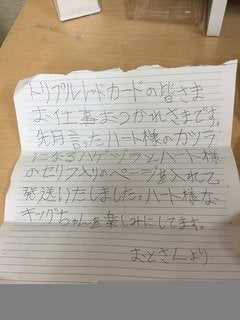 トリプルレッドカードの皆さま
お仕事おつかれさまです。
先月言ったハート様のカツラ
になるハゲヅラとハート様
のセリフ入りのページを入れて
発送いたしました。ハート様な
キングちゃんを楽しみにしてます。
おとさんより